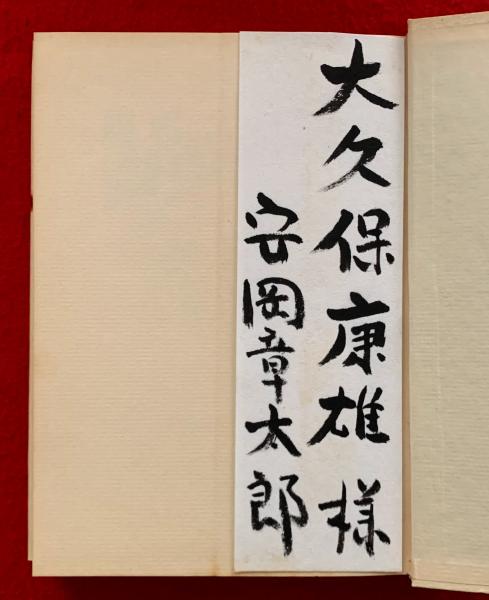 大久保康雄様
安岡章太郎